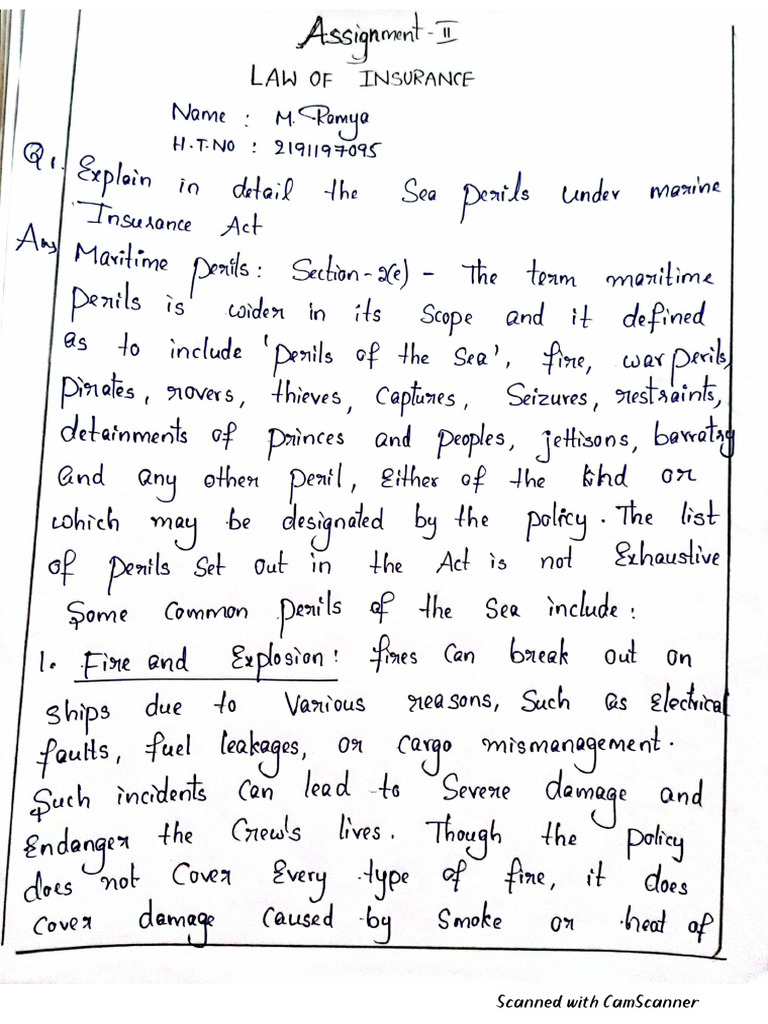 Assignment - II
LAW OF INSURANCE
Name : M. Ramya
H.T.NO : 2191197095
Q1. Explain in detail the Sea perils under marine
Insurance Act
Ans Maritime perils: Section-2(e) - The term maritime
perils is wider in its Scope and it defined
as to include 'perils of the Sea', fire, war perils,
pirates, rovers, thieves, Captures, Seizures, restraints,
detainments of princes and peoples, jettisons, barratry
and any other peril, Either of the kind or
which may be designated by the policy. The list
of perils Set Out in the Act is not Exhaustive
Some Common perils of the Sea include :
1. Fire and Explosion: fires Can break out on
ships due to Various reasons, Such as Electrical
faults, fuel leakages, or Cargo mismanagement.
Such incidents Can lead to Severe damage and
Endanger the Crew's lives. Though the policy
does not Cover Every type of fire, it does
Cover damage Caused by Smoke or heat of
Scanned with CamScanner